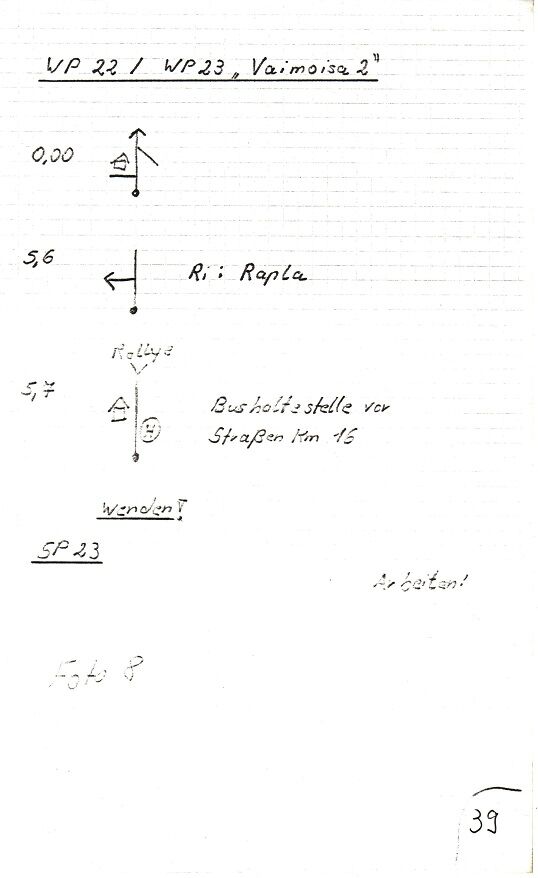 WP 22 / WP23 „Vaimoisa 2"
0,00
5,6
Ri: Rapla
Rallye
5,7
H
Bushaltestelle vor
Straßen Km 16
Wenden!
SP 23
Arbeiten!
Foto 8
39